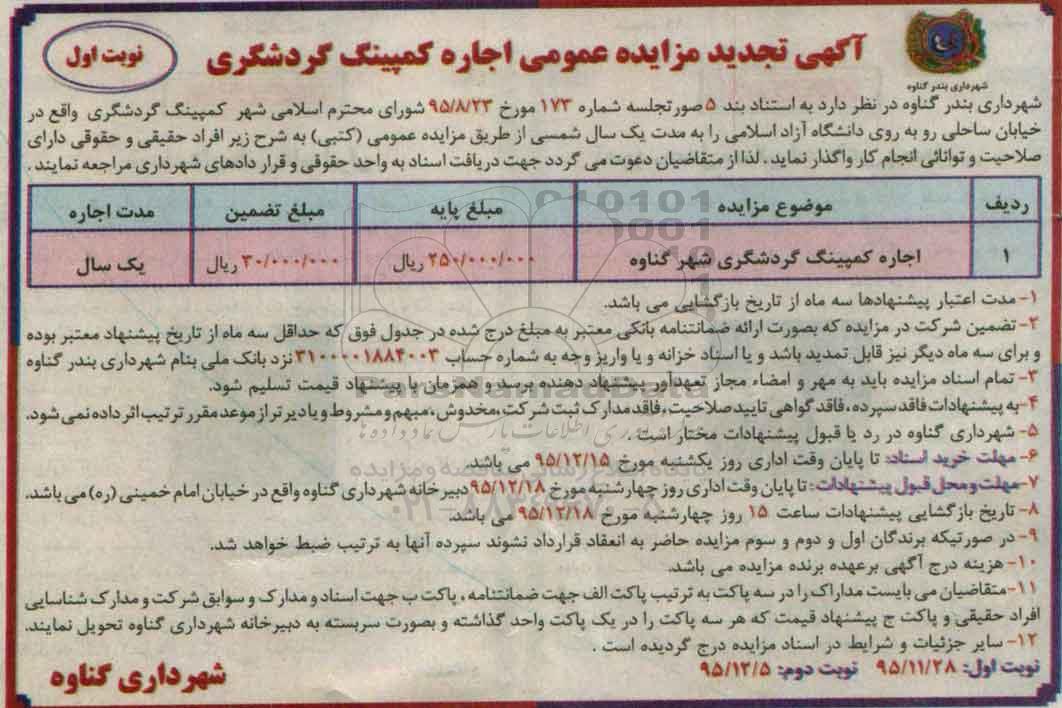 آگهی تجدید مزایده عمومی اجاره کمپینگ گردشگری
نوبت اول
شهرداری بندر گناوه
شهرداری بندر گناوه در نظر دارد به استناد بند ۵ صورتجلسه شماره ۱۷۳ مورخ ۹۵/۸/۲۳ شورای محترم اسلامی شهر کمپینگ گردشگری واقع در
خیابان ساحلی رو به روی دانشگاه آزاد اسلامی را به مدت یک سال شمسی از طریق مزایده عمومی (کتبی) به شرح زیر افراد حقیقی و حقوقی دارای
صلاحیت و توانائی انجام کار واگذار نماید. لذا از متقاضیان دعوت می گردد جهت دریافت اسناد به واحد حقوقی و قرار دادهای شهرداری مراجعه نمایند.
ردیف موضوع مزایده مبلغ پایه مبلغ تضمین مدت اجاره
۱ اجاره کمپینگ گردشگری شهر گناوه ۲۵۰/۰۰۰/۰۰۰ ریال ۳۰/۰۰۰/۰۰۰ ریال یک سال
۱- مدت اعتبار پیشنهادها سه ماه از تاریخ بازگشایی می باشد.
۲- تضمین شرکت در مزایده که بصورت ارائه ضمانتنامه بانکی معتبر به مبلغ درج شده در جدول فوق که حداقل سه ماه از تاریخ پیشنهاد معتبر بوده
و برای سه ماه دیگر نیز قابل تمدید باشد و یا اسناد خزانه و یا واریز وجه به شماره حساب ۳۱۰۰۰۰۱۸۸۴۰۰۳ نزد بانک ملی بنام شهرداری بندر گناوه
۳- تمام اسناد مزایده باید به مهر و امضاء مجاز تعهدآور پیشنهاد دهنده برسد و همزمان با پیشنهاد قیمت تسلیم شود.
۴- به پیشنهادات فاقد سپرده، فاقد گواهی تایید صلاحیت، فاقد مدارک ثبت شرکت، مخدوش، مبهم و مشروط و یا دیر تر از موعد مقرر ترتیب اثر داده نمی شود.
۵- شهرداری گناوه در رد یا قبول پیشنهادات مختار است.
۶- مهلت خرید اسناد: تا پایان وقت اداری روز یکشنبه مورخ ۹۵/۱۲/۱۵ می باشد.
۷- مهلت و محل قبول پیشنهادات: تا پایان وقت اداری روز چهارشنبه مورخ ۹۵/۱۲/۱۸ دبیرخانه شهرداری گناوه واقع در خیابان امام خمینی (ره) می باشد.
۸- تاریخ بازگشایی پیشنهادات ساعت ۱۵ روز چهارشنبه مورخ ۹۵/۱۲/۱۸ می باشد.
۹- در صورتیکه برندگان اول و دوم و سوم مزایده حاضر به انعقاد قرارداد نشوند سپرده آنها به ترتیب ضبط خواهد شد.
۱۰- هزینه درج آگهی برعهده برنده مزایده می باشد.
۱۱- متقاضیان می بایست مداراک را در سه پاکت به ترتیب پاکت الف جهت ضمانتنامه، پاکت ب جهت اسناد و مدارک و سوابق شرکت و مدارک شناسایی
افراد حقیقی و پاکت ج پیشنهاد قیمت که هر سه پاکت را در یک پاکت واحد گذاشته و بصورت سربسته به دبیرخانه شهرداری گناوه تحویل نمایند.
۱۲- سایر جزئیات و شرایط در اسناد مزایده درج گردیده است.
نوبت اول: ۹۵/۱۱/۲۸ نوبت دوم: ۹۵/۱۲/۵
شهرداری گناوه